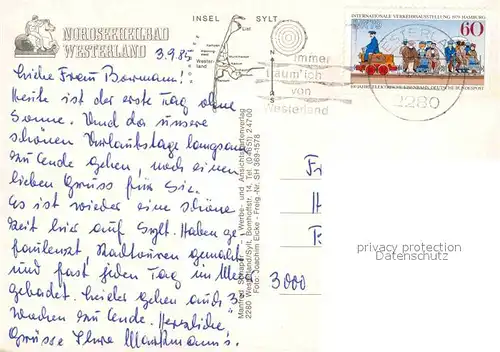 NORDSEEHEILBAD
WESTERLAND
INSEL SYLT
List
Westerland
N
S
immer
träum'ich
von
Westerland
2280
INTERNATIONALE VERKEHRSAUSSTELLUNG 1979 HAMBURG
60
100 JAHRE ELEKTRISCHE EISENBAHN DEUTSCHE BUNDESPOST
3.9.85
Liebe Frau Bormann!
Heute ist der erste Tag ohne
Sonne. Und da unsere
schönen Urlaubstage langsam
zu Ende gehen, noch einen
lieben Gruss für Sie.
Es ist wieder eine schöne
Zeit hier auf Sylt. Haben ge-
faulenzt, Radtouren gemacht
und fast jeden Tag im Meer
gebadet. Leider gehen auch 3
Wochen zu Ende. Herzliche
Grüsse Ihre
Manfred - Werbe- und Ansichtskartenverlag
2280 Westerland/Sylt, Bomhoffstr. 14, Tel. (04651) 24700
Foto: Joachim Eicke - Freig.-Nr. SH 369-1578
Fr
H
3000
privacy protection
Datenschutz